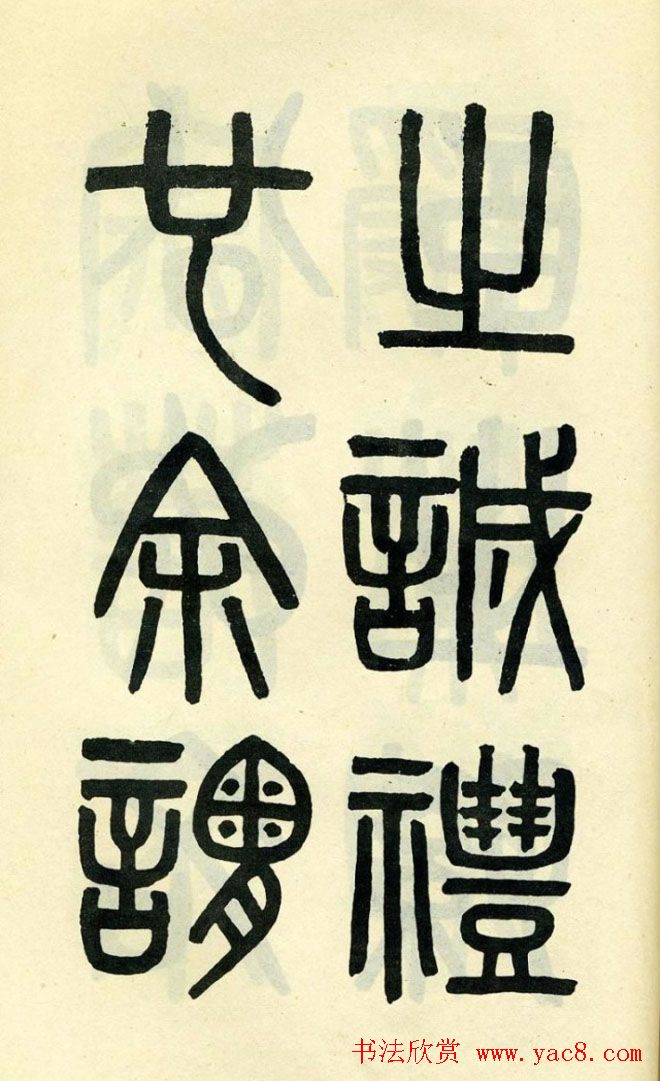 之誠禮
也余謂
书法欣赏 www.yac8.com